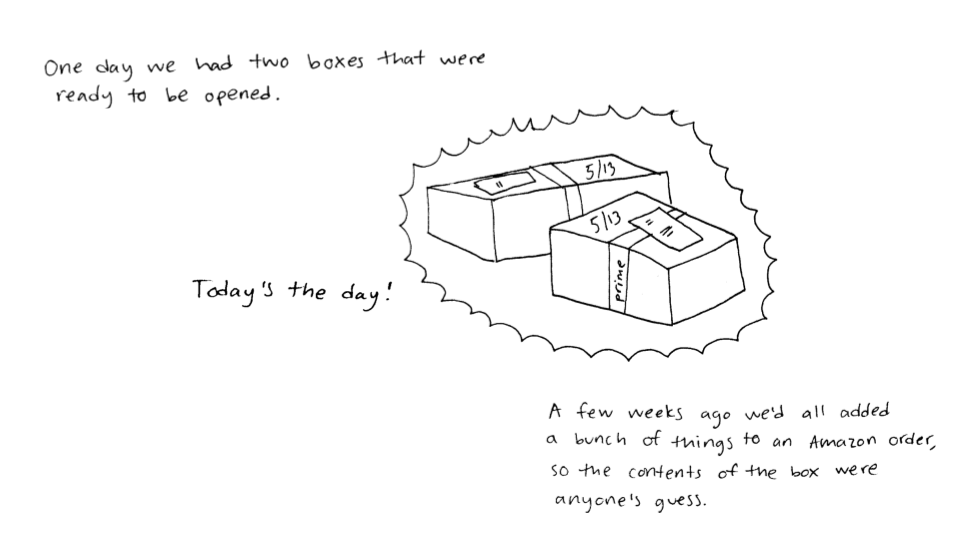 One day we had two boxes that were
ready to be opened.
5/13
5/13
prime
Today's the day!
A few weeks ago we'd all added
a bunch of things to an Amazon order,
so the contents of the box were
anyone's guess.